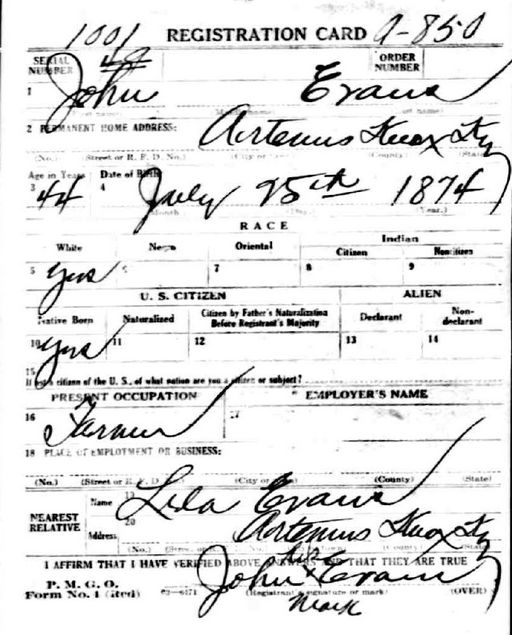 1001 REGISTRATION CARD A-850
SERIAL NUMBER ORDER NUMBER
1 John Evans
2 PERMANENT HOME ADDRESS: Artemus Knox Ky
(No.) (Street or R. F. D. No.) (City or (County) (State)
Age in Years Date of Birth
3 44 4 July 25th 1874
(Month (Day.) (Year.)
RACE
White Negro Oriental Indian
Citizen Noncitizen
5 Yes 6 7 8 9
U. S. CITIZEN ALIEN
Native Born Naturalized Citizen by Father's Naturalization Before Registrant's Majority Declarant Non-declarant
10 Yes 11 12 13 14
15
If not a citizen of the U. S., of what nation are you a citizen or subject?
PRESENT OCCUPATION EMPLOYER'S NAME
16 Farmer 17
18 PLACE OF EMPLOYMENT OR BUSINESS:
(No.) (Street or R. F. D. (City or (County) (State)
NEAREST RELATIVE
Name 19 Lila Evans
Address 20 Artemus Knox Ky
(No.) (Stree
I AFFIRM THAT I HAVE VERIFIED ABOVE ANSWERS AND THAT THEY ARE TRUE
P. M. G. O.
Form No. 1 (Red) John his x mark Evans
(Registrant's signature or mark) (OVER)